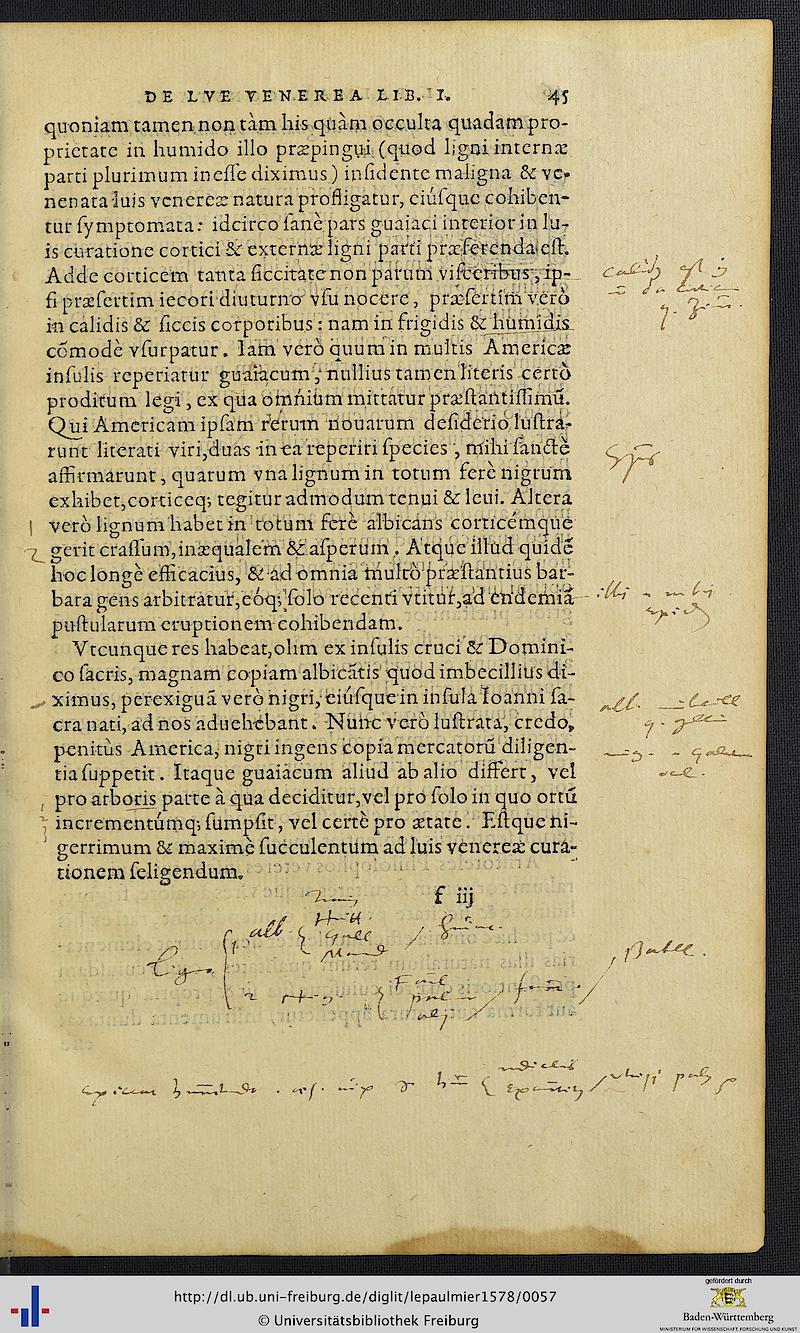 DE LVE VENEREA LIB. I. 45
quoniam tamen non tàm his quàm occulta quadam pro-
prietate in humido illo præpingui (quod ligni internæ
parti plurimum ineſſe diximus) inſidente maligna & ve-
nenata luis venereæ natura profligatur, eiúſque cohiben-
tur ſymptomata: idcirco ſanè pars guaiaci interior in lu-
is curatione cortici & externæ ligni parti præferenda eſt.
Adde corticem tanta ſiccitate non parum viſceribus, ip-
ſi præſertim iecori diuturno vſu nocere, præſertim verò
in calidis & ſiccis corporibus: nam in frigidis & humidis
cõmodè vſurpatur. Iam verò quum in multis Americæ
inſulis reperiatur guaiacum, nullius tamen literis certò
proditum legi, ex qua omnium mittatur præſtantiſſimũ.
Qui Americam ipſam rerum nouarum deſiderio luſtra-
runt literati viri, duas in ea reperiri ſpecies, mihi ſanctè
affirmarunt, quarum vna lignum in totum ferè nigrum
exhibet, corticeq; tegitur admodum tenui & leui. Altera
verò lignum habet in totum ferè albicans corticémque
gerit craſſum, inæqualem & aſperum. Atque illud quidẽ
hoc longè efficacius, & ad omnia multò præſtantius bar-
bara gens arbitratur, eóq; ſolo recenti vtitur, ad endemiã
puſtularum eruptionem cohibendam.
Vtcunque res habeat, olim ex inſulis cruci & Domini-
co ſacris, magnam copiam albicãtis quod imbecillius di-
ximus, perexiguã verò nigri, eiúſque in inſula Ioanni ſa-
cra nati, ad nos aduehebant. Nunc verò luſtrata, credo,
penitùs America, nigri ingens copia mercatorũ diligen-
tia ſuppetit. Itaque guaiacum aliud ab alio differt, vel
pro arboris parte à qua deciditur, vel pro ſolo in quo ortũ
incrementúmq; ſumpſit, vel certè pro ætate. Eſtque ni-
gerrimum & maximè ſucculentum ad luis venereæ cura-
tionem ſeligendum.
f iij
http://dl.ub.uni-freiburg.de/diglit/lepaulmier1578/0057
© Universitätsbibliothek Freiburg
gefördert durch
Baden-Württemberg
MINISTERIUM FÜR WISSENSCHAFT, FORSCHUNG UND KUNST